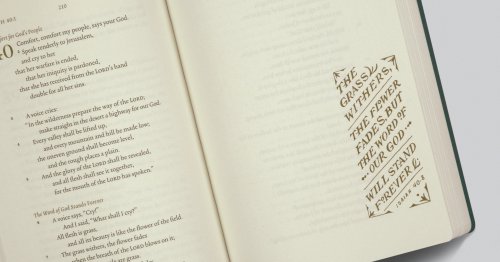 H 40:1
210
fort for God's People
40 Comfort, comfort my people, says your God.
2 Speak tenderly to Jerusalem,
and cry to her
that her warfare is ended,
that her iniquity is pardoned,
that she has received from the LORD's hand
double for all her sins.
3 A voice cries:
"In the wilderness prepare the way of the LORD;
make straight in the desert a highway for our God.
4 Every valley shall be lifted up,
and every mountain and hill be made low;
the uneven ground shall become level,
and the rough places a plain.
5 And the glory of the LORD shall be revealed,
and all flesh shall see it together,
for the mouth of the LORD has spoken."
The Word of God Stands Forever
6 A voice says, "Cry!"
And I said, "What shall I cry?"
All flesh is grass,
and all its beauty is like the flower of the field.
7 The grass withers, the flower fades
when the breath of the LORD blows on it;
are grass.
THE
GRASS
WITHERS,
THE FLOWER
FADES, BUT
THE WORD OF
OUR GOD
WILL STAND
FOREVER
ISAIAH 40:8